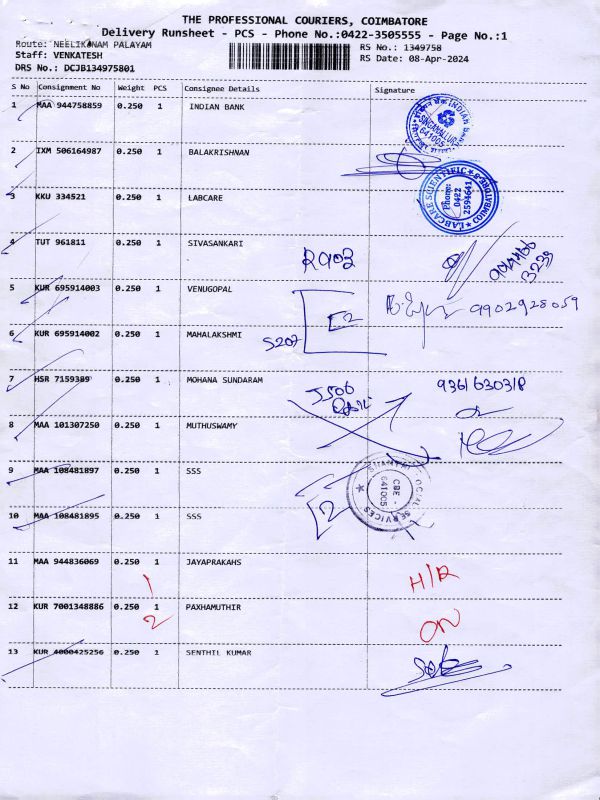 THE PROFESSIONAL COURIERS, COIMBATORE
Delivery Runsheet - PCS - Phone No.:0422-3505555 - Page No.:1
Route: NEELIKONAM PALAYAM
RS No.: 1349758
Staff: VENKATESH
RS Date: 08-Apr-2024
DRS No.: DCJB134975801
S No Consignment No Weight PCS Consignee Details Signature
1 MAA 944758859 0.250 1 INDIAN BANK
INDIAN BANK SINGANALLUR 641005
2 IXM 506164987 0.250 1 BALAKRISHNAN
3 KKU 334521 0.250 1 LABCARE
LABCARE SCIENTIFIC COIMBATORE Phone: 0422 2594641
4 TUT 961811 0.250 1 SIVASANKARI
R903
5 KUR 695914003 0.250 1 VENUGOPAL
9902928059
6 KUR 695914002 0.250 1 MAHALAKSHMI
S207
7 HSR 7159389 0.250 1 MOHANA SUNDARAM
J506
9361630318
8 MAA 101307250 0.250 1 MUTHUSWAMY
9 MAA 108481897 0.250 1 SSS
SHANTHI SOCIAL SERVICES CBE - 641005
10 MAA 108481895 0.250 1 SSS
11 MAA 944836069 0.250 1 JAYAPRAKAHS
1
H/R
12 KUR 7001348886 0.250 1 PAXHAMUTHIR
2
ON
13 KUR 4000425256 0.250 1 SENTHIL KUMAR